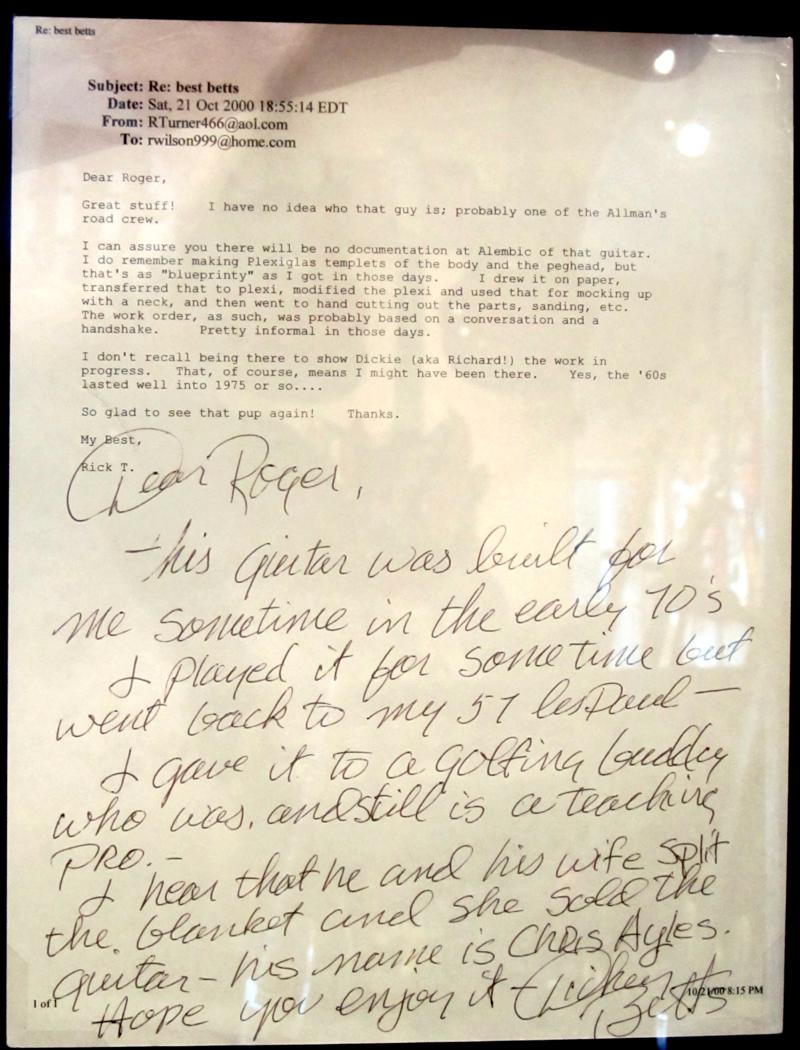 Re: best betts
Subject: Re: best betts
Date: Sat, 21 Oct 2000 18:55:14 EDT
From: RTurner466@aol.com
To: rwilson999@home.com
Dear Roger,
Great stuff! I have no idea who that guy is; probably one of the Allman's
road crew.
I can assure you there will be no documentation at Alembic of that guitar.
I do remember making Plexiglas templets of the body and the peghead, but
that's as "blueprinty" as I got in those days. I drew it on paper,
transferred that to plexi, modified the plexi and used that for mocking up
with a neck, and then went to hand cutting out the parts, sanding, etc.
The work order, as such, was probably based on a conversation and a
handshake. Pretty informal in those days.
I don't recall being there to show Dickie (aka Richard!) the work in
progress. That, of course, means I might have been there. Yes, the '60s
lasted well into 1975 or so....
So glad to see that pup again! Thanks.
My Best,
Rick T.
Dear Roger,
This guitar was built for
me sometime in the early 70's
I played it for sometime but
went back to my 57 les Paul —
I gave it to a golfing buddy
who was, and still is a teaching
PRO. -
I hear that he and his wife split
the blanket and she sold the
guitar - his name is Chris Ayles.
Hope you enjoy it - Dickey
Betts
1 of 1
10/21/00 8:15 PM